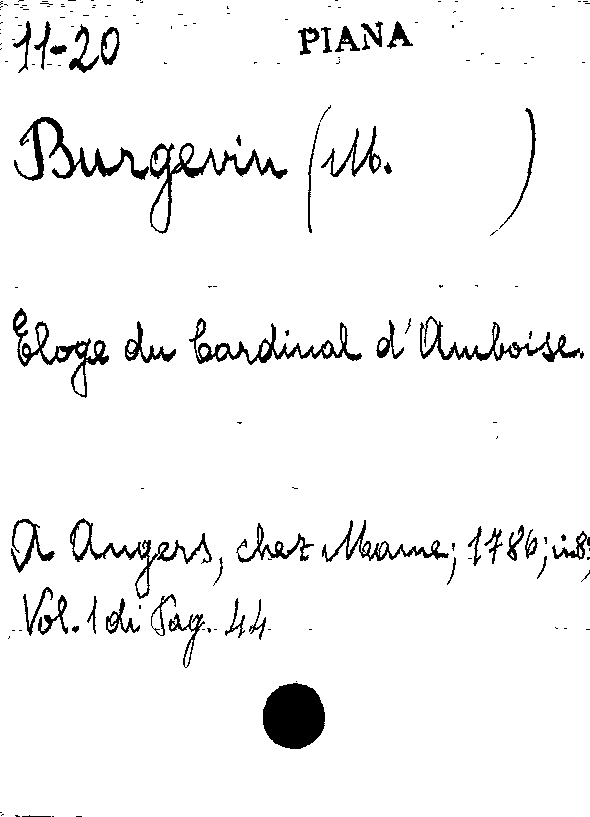 11-20 PIANA
Burgevin (M. )
Eloge du Cardinal d'Amboise.
A Angers, chez Mame; 1786; in 8;
Vol. 1 di Pag. 44